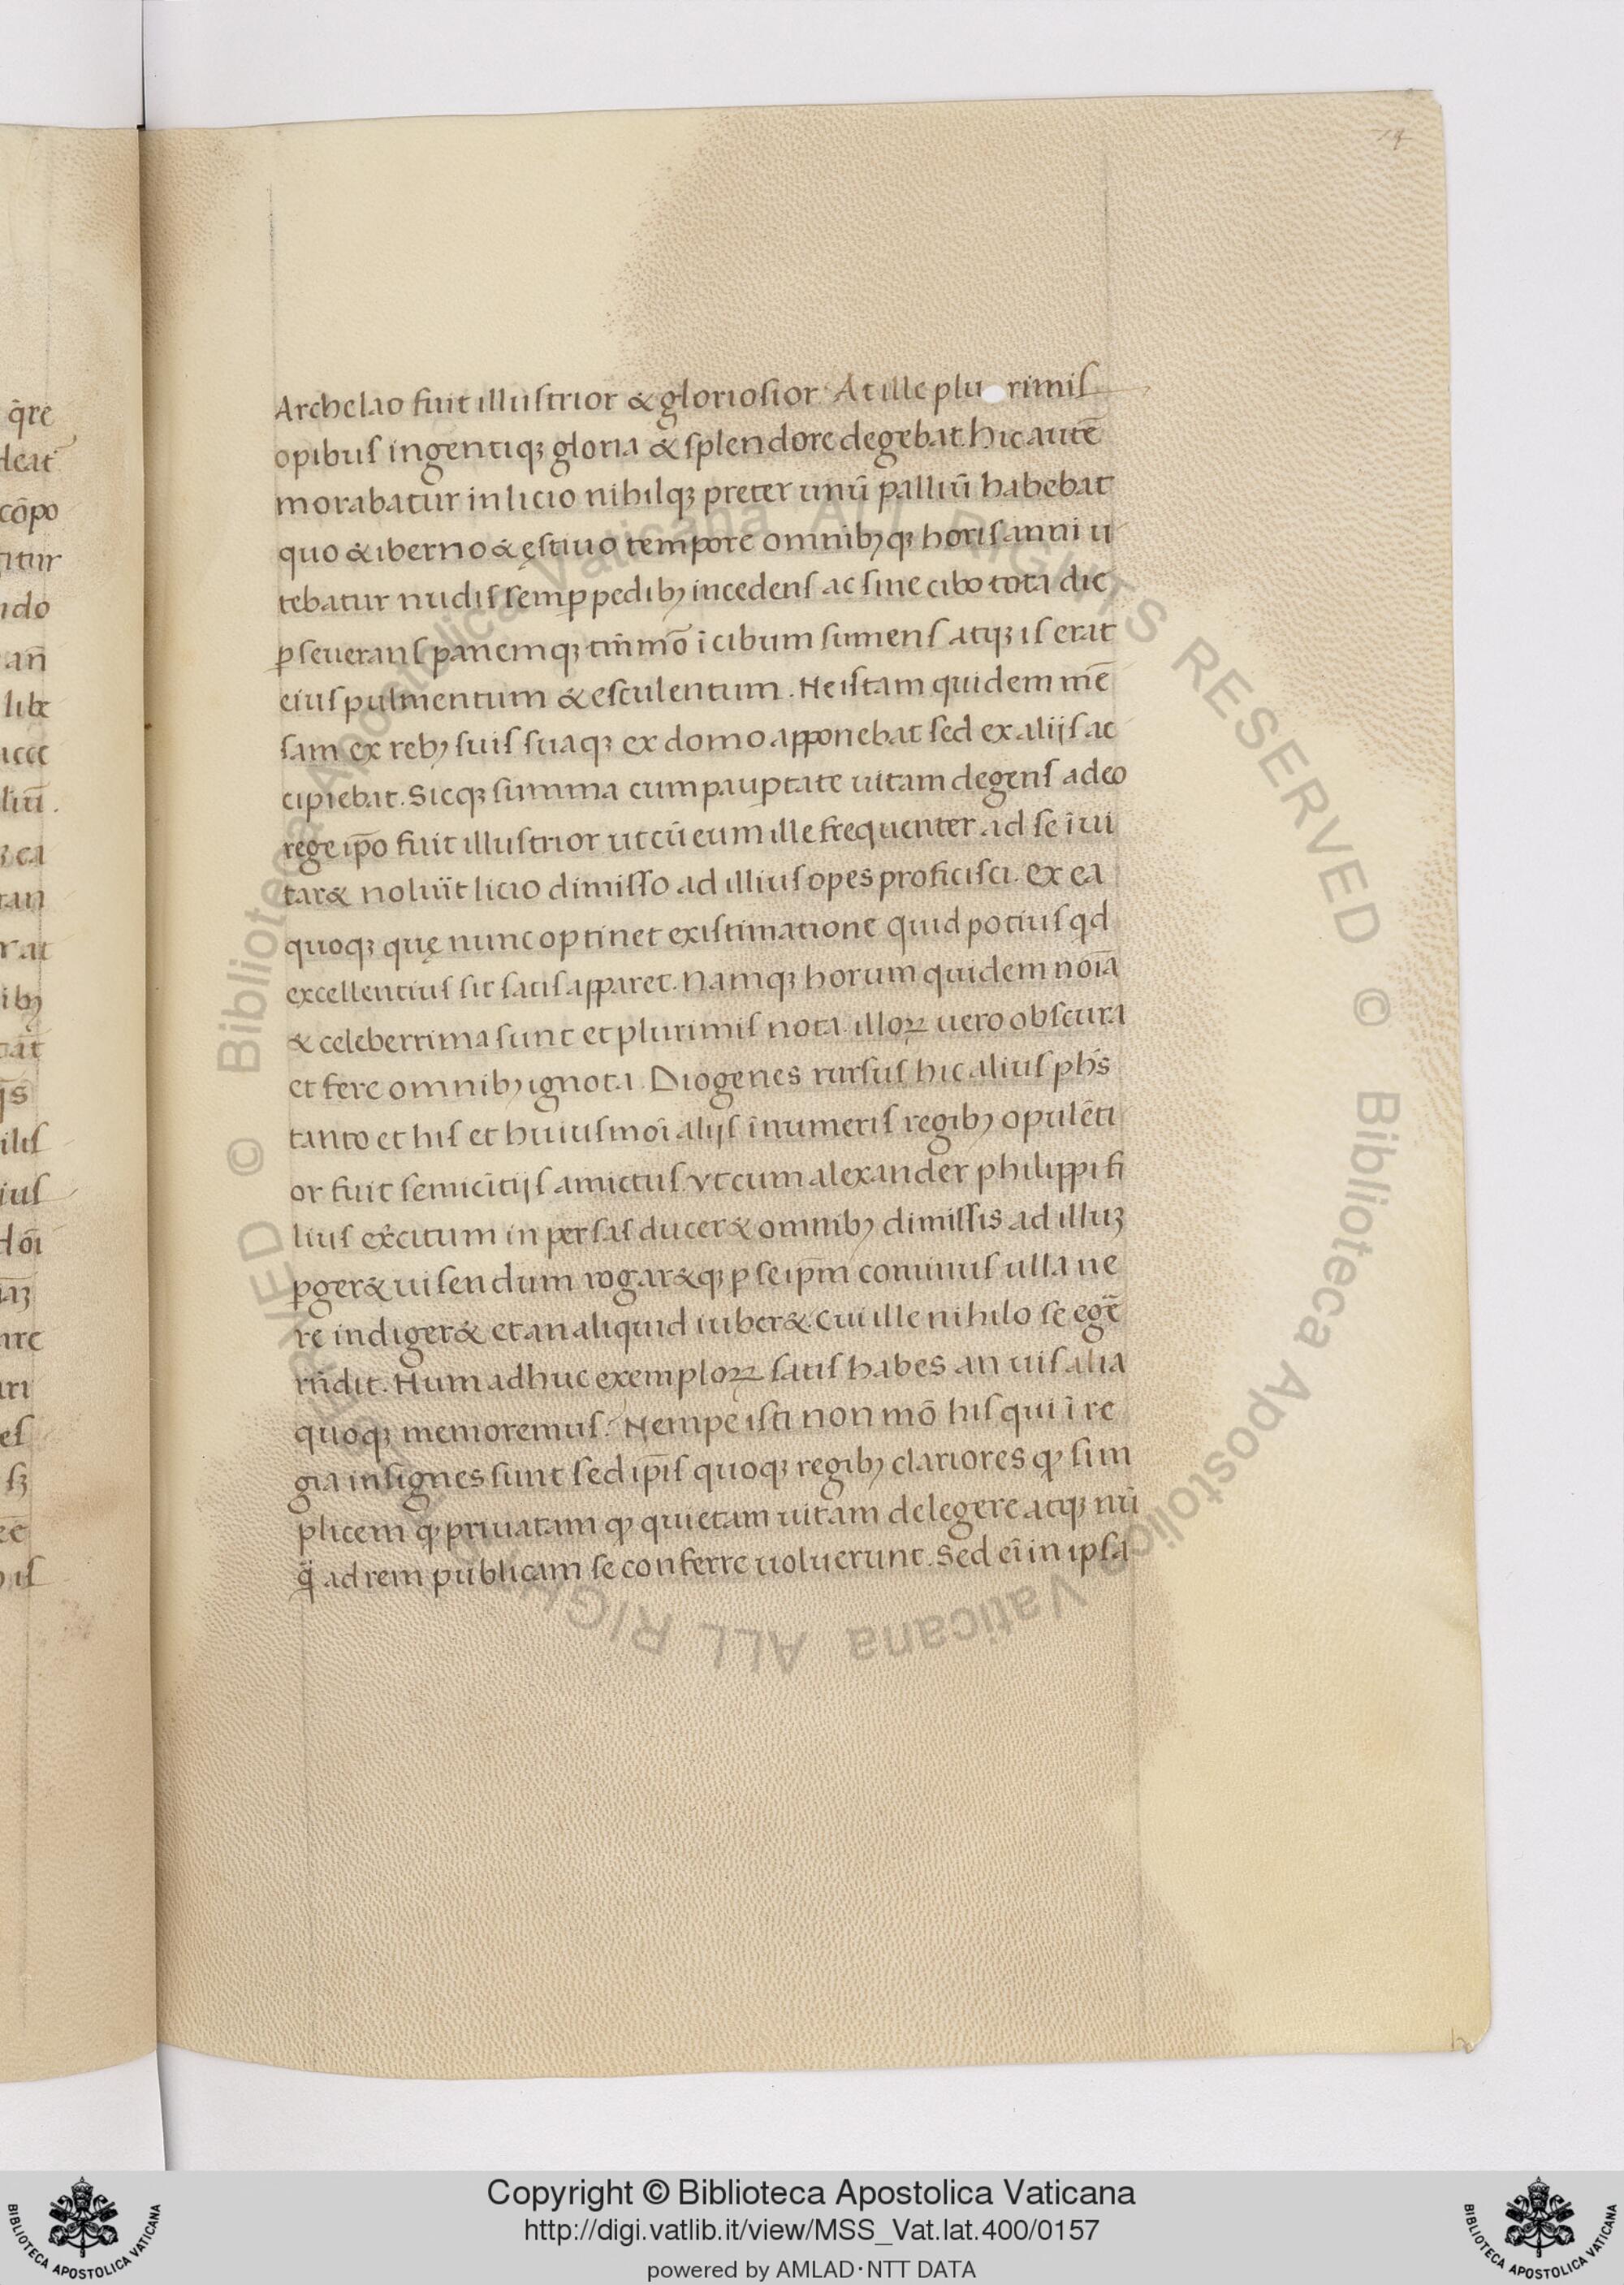 q̄re
deat
cōpo
titur
ido
an̄
libe
accc
liū.
ꝫ ea
tan
rat
ibꝫ
cāt
qs̄
ilis
ius
dōi
iāꝫ
nre
ari
es
sꝫ
eē
is
14
Archelao fuit illustrior & gloriosior. At ille plu rimis
opibus ingentiqꝫ gloria & splendore degebat. hic autē
morabatur in licio nihilqꝫ preter unū palliū habebat
quo & iberno & ęstiuo tempore omnibꝫqꝫ horis anni u
tebatur nudis semꝑ pedibꝫ incedens ac sine cibo tota die
ꝑseuerans panemqꝫ tm̄mō ī cibum sumens atqꝫ is erat
eius pulmentum & esculentum. Ne istam quidem mē
sam ex rebꝫ suis suaqꝫ ex domo apponebat sed ex alijs ac
cipiebat. Sicqꝫ summa cum pauꝑtate uitam degens adeo
rege ip̄o fuit illustrior ut cū eum ille frequenter ad se īui
tar& noluīt licio dimisso ad illius opes proficisci. Ex ea
quoqꝫ quę nunc optinet existimatione quid potius qd
excellentius sit satis apparet. Namqꝫ horum quidem noīa
& celeberrima sunt et plurimis nota. illoꝝ uero obscura
et fere omnibꝫ ignota. Diogenes rursus hic alius ph̄s
tanto et his et huiusmōi alijs īnumeris regibꝫ opulēti
or fuit semicītijs amictus. vt cum alexander philippi fi
lius ex̄citum in persas ducer& omnibꝫ dimissis ad illuꝫ
ꝑger& uisendum rogar&qꝫ ꝑ seip̄m cominus ulla ne
re indiger& et an aliquid iuber&. Cui ille nihilo se egē
rn̄dit. Num adhuc exemploꝝ satis habes an uis alia
quoqꝫ memoremus. Nempe isti non mō his qui ī re
gia insignes sunt sed ip̄is quoqꝫ regibꝫ clariores ꝙ sim
plicem ꝙ priuatam ꝙ quietam uitam delegere atqꝫ nū
q̄ ad rem publicam se conferre uoluerunt. Sed eī in ipsa
Copyright © Biblioteca Apostolica Vaticana
http://digi.vatlib.it/view/MSS_Vat.lat.400/0157
powered by AMLAD·NTT DATA
BIBLIOTECA APOSTOLICA VATICANA
BIBLIOTECA APOSTOLICA VATICANA